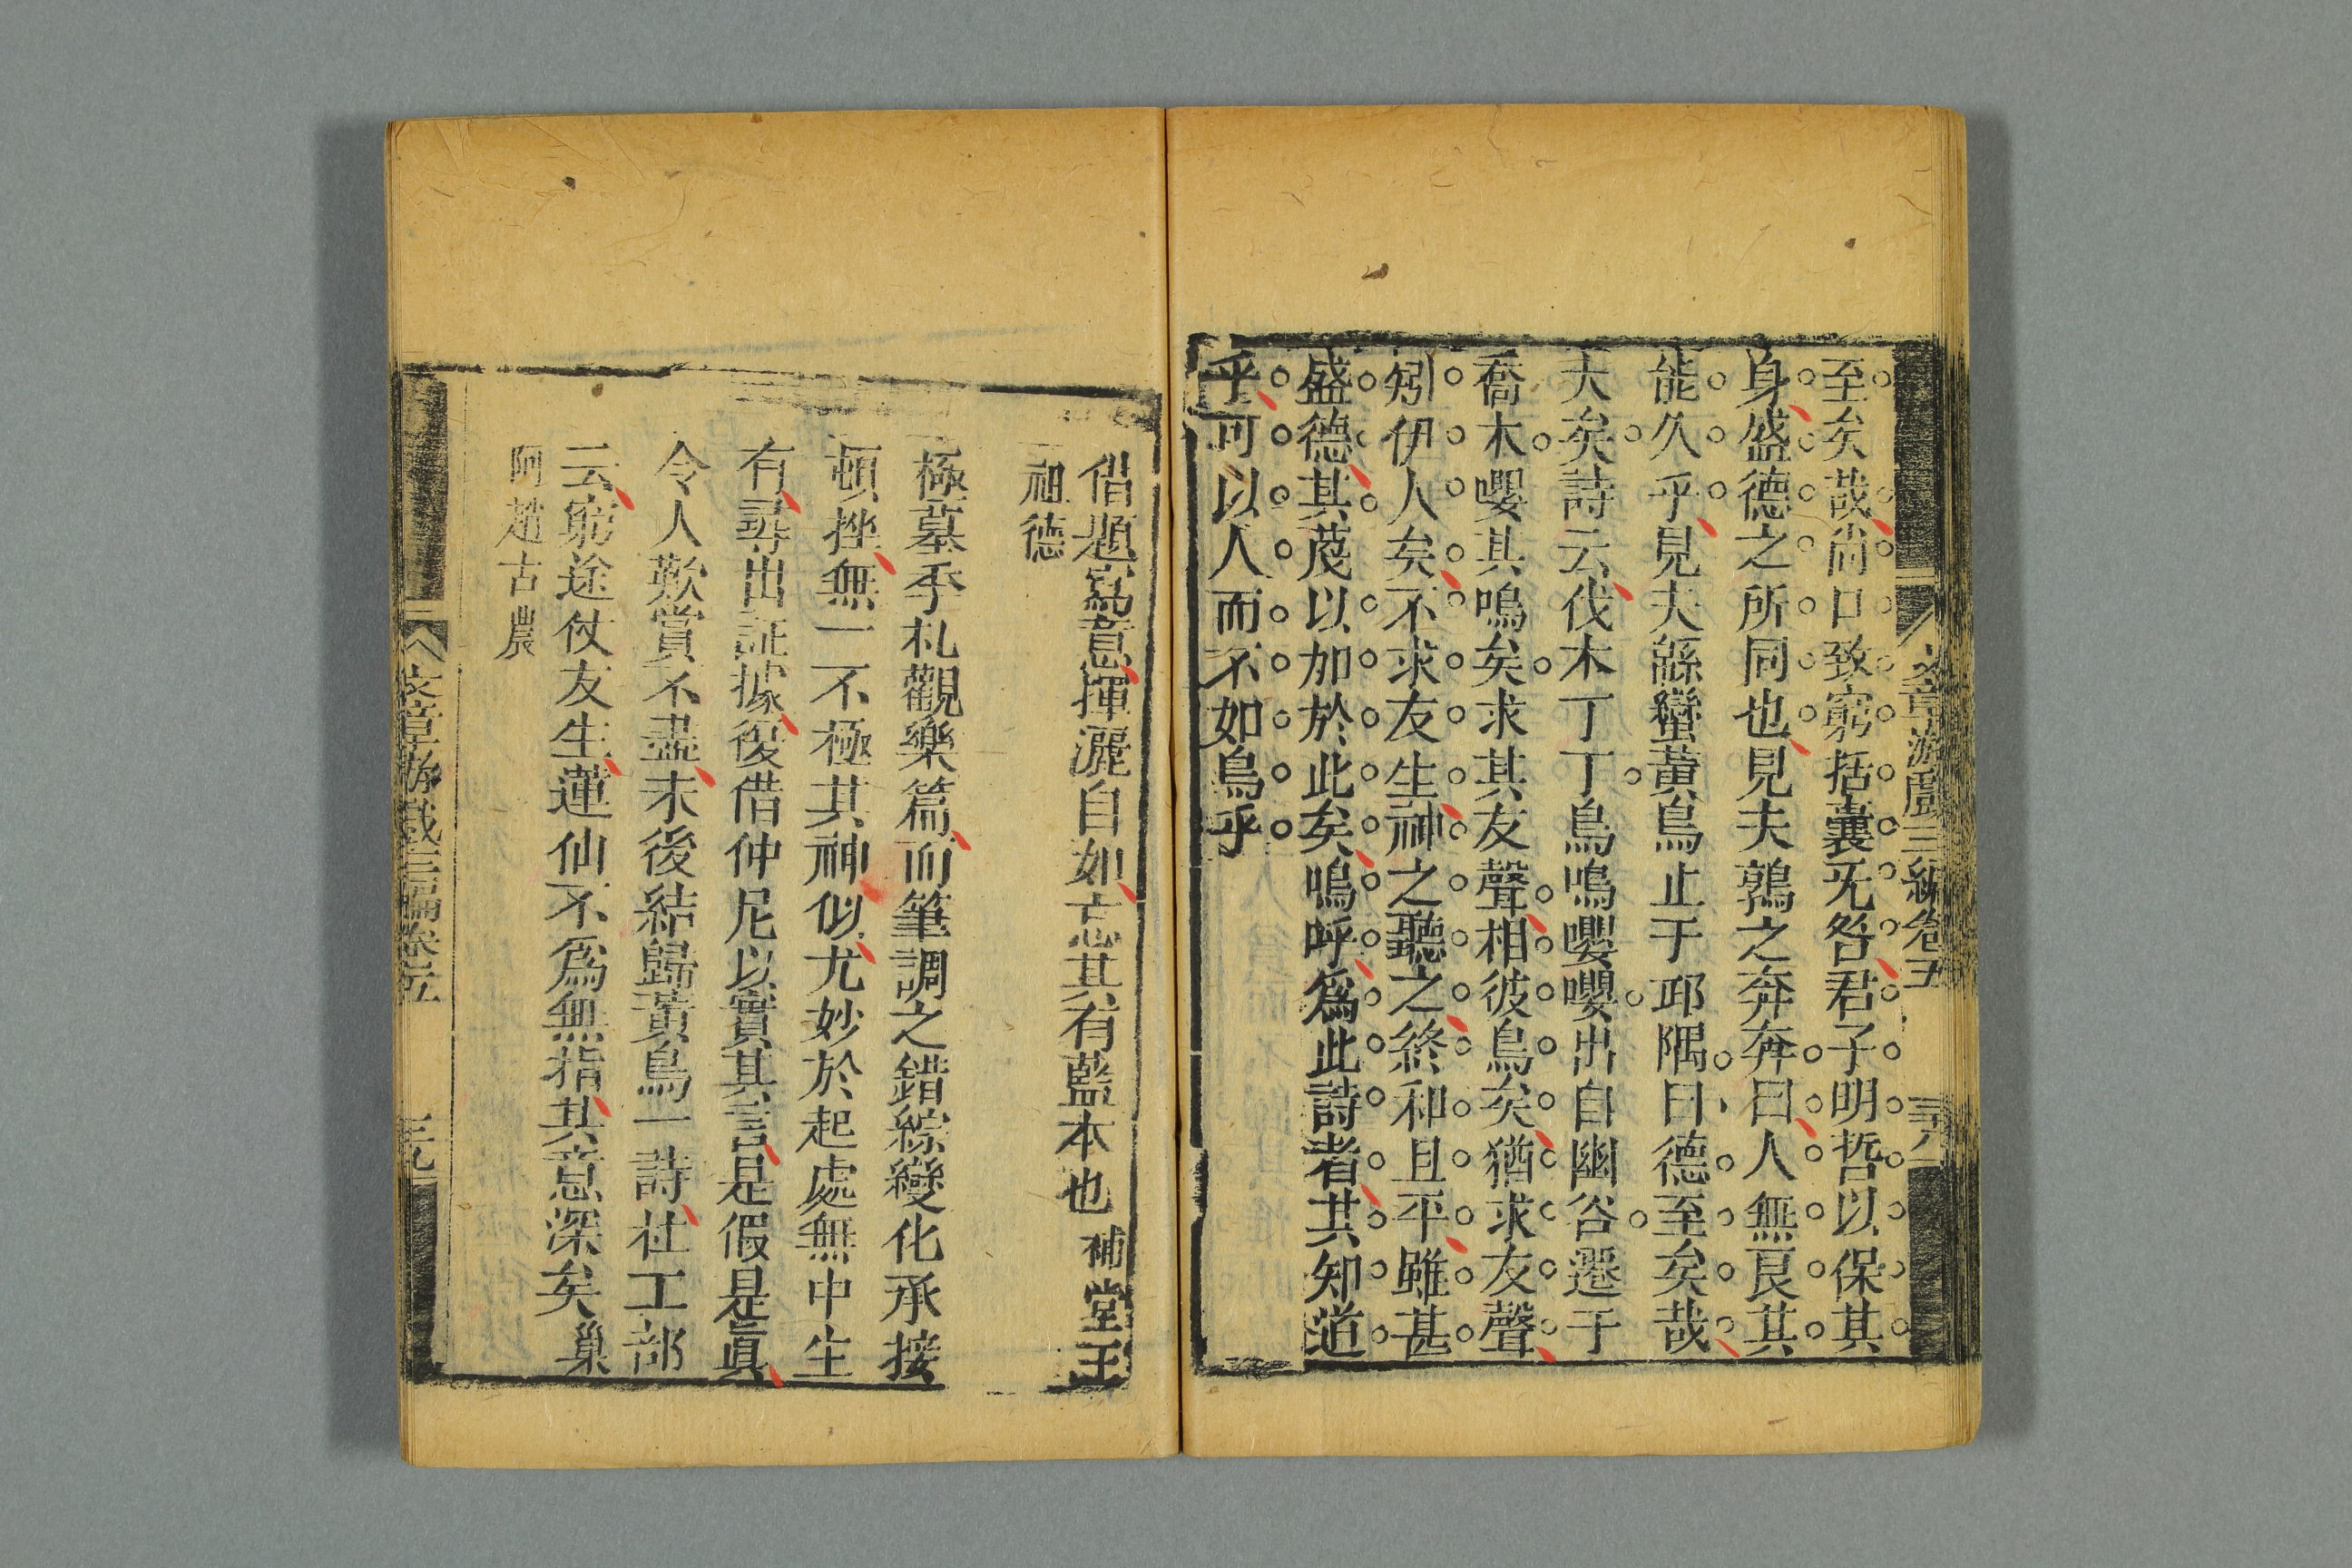 文章游戲三編卷五 三八
至矣哉尚口致窮括囊旡咎君子明哲以保其
身盛德之所同也見夫鶉之奔奔曰人無良其
能久乎見夫緜蠻黃鳥止于邱隅曰德至矣哉
大矣詩云伐木丁丁鳥鳴嚶嚶出自幽谷遷于
喬木嚶其鳴矣求其友聲相彼鳥矣猶求友聲
矧伊人矣不求友生神之聽之終和且平雖甚
盛德其蔑以加於此矣嗚呼爲此詩者其知道
乎可以人而不如鳥乎
借題寫意揮灑自如忘其有藍本也 補堂王
祖德
極摹季札觀樂篇而筆調之錯綜變化承接
頓挫無一不極其神似尤妙於起處無中生
有尋出証據後借仲尼以實其言是假是真
令人歎賞不盡末後結歸黃鳥一詩杜工部
云窮途仗友生蓮仙不爲無指其意深矣 巢
阿趙古農
文章游戲三編卷五 三九